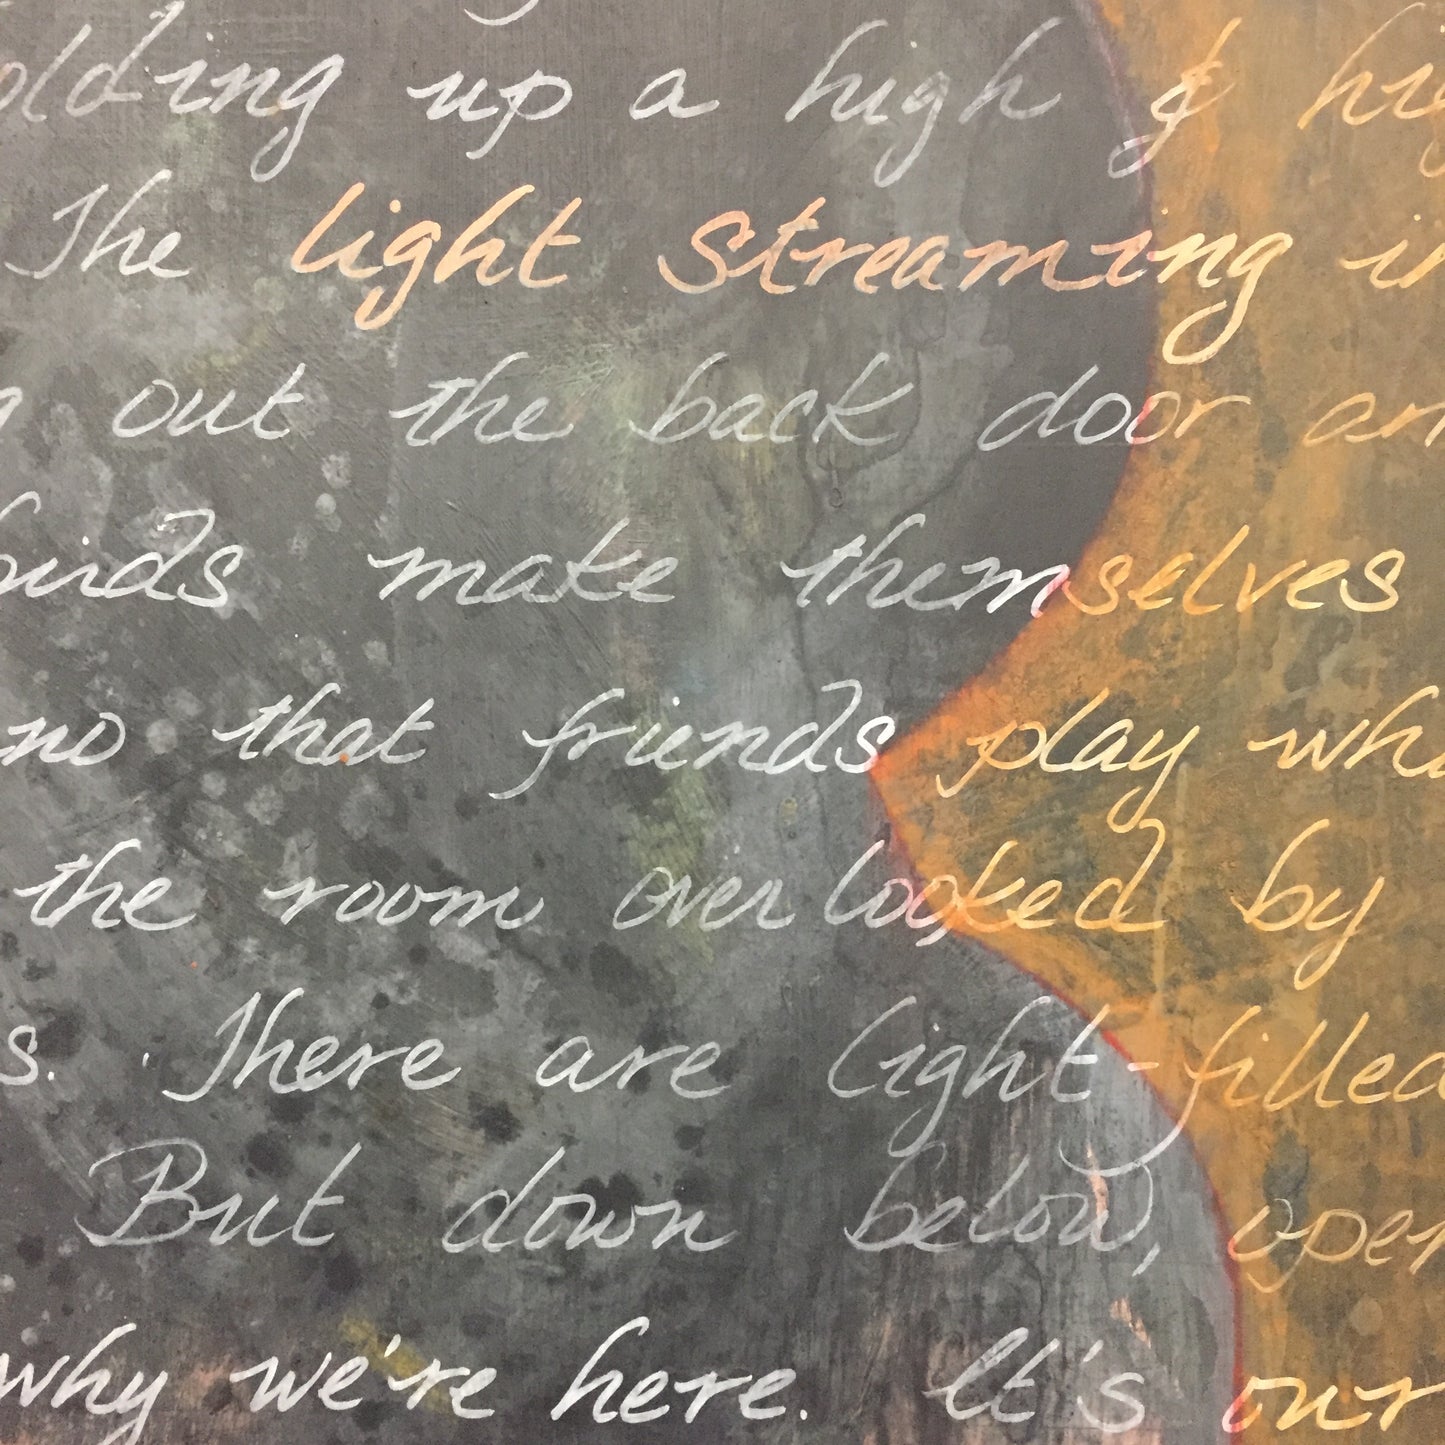 olding up a high & hig
The light streaming in
out the back door an
birds make themselves
no that friends play whi
the room overlooked by
s. There are light-filled
But down below, open
why we're here. It's our